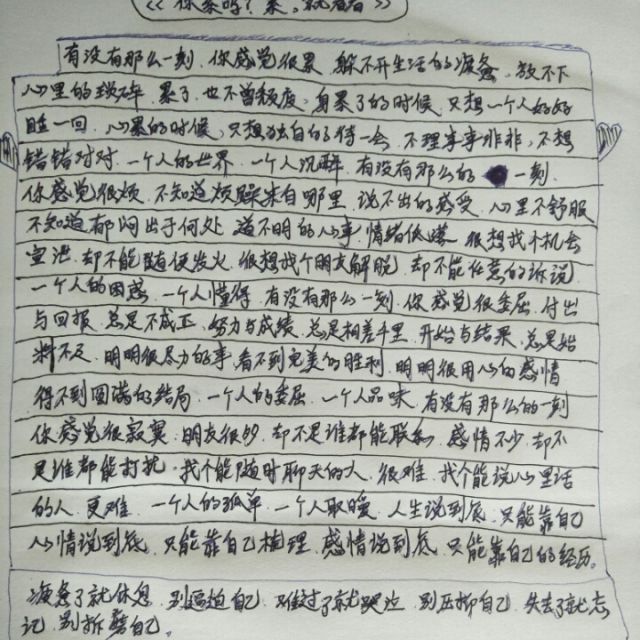 《你累吗？累，就看看》
有没有那么一刻，你感觉很累，躲不开生活的疲惫，放不下
心里的琐碎，累了，也不曾颓废，身累了的时候，只想一个人好好
睡一回，心累的时候，只想独自的待一会，不理事事非非，不想
错错对对，一个人的世界，一个人沉醉，有没有那么的一刻，
你感觉很烦，不知道烦躁来自哪里，说不出的感受，心里不舒服
不知道郁闷出于何处，道不明的心事，情绪低落，很想找个机会
宣泄，却不能随便发火，很想找个朋友解脱，却不能任意的诉说，
一个人的困惑，一个人懂得，有没有那么一刻，你感觉很委屈，付出
与回报，总是不成正，努力与成绩，总是相差千里，开始与结果，总是始
料不及，明明很尽力的事，看不到完美的胜利，明明很用心的感情
得不到圆满的结局，一个人的委屈，一个人品味，有没有那么的一刻
你感觉很寂寞，朋友很多，却不是谁都能联系，感情不少，却不
是谁都能打扰，找个能随时聊天的人，很难，找个能说心里话
的人，更难，一个人的孤单，一个人取暖，人生说到底，只能靠自己
心情说到底，只能靠自己梳理，感情说到底，只能靠自己的经历。
疲惫了就休息，别逼迫自己，难过了就哭泣，别压抑自己，失去了就忘
记，别折磨自己。